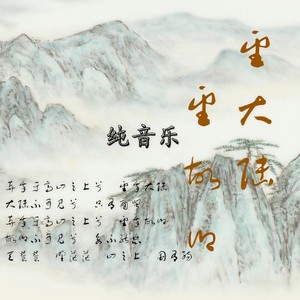 望大陆
望故乡
纯音乐
葬我于高山之上兮 望我大陆
大陆不可见兮 只有痛哭
葬我于高山之上兮 望我故乡
故乡不可见兮 永不能忘
天苍苍 野茫茫 山之上 国有殇